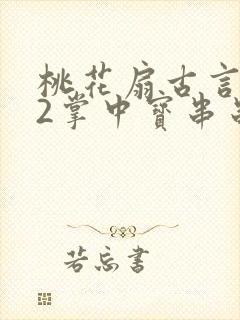 桃花扇古言
2掌中寶串
若忘書